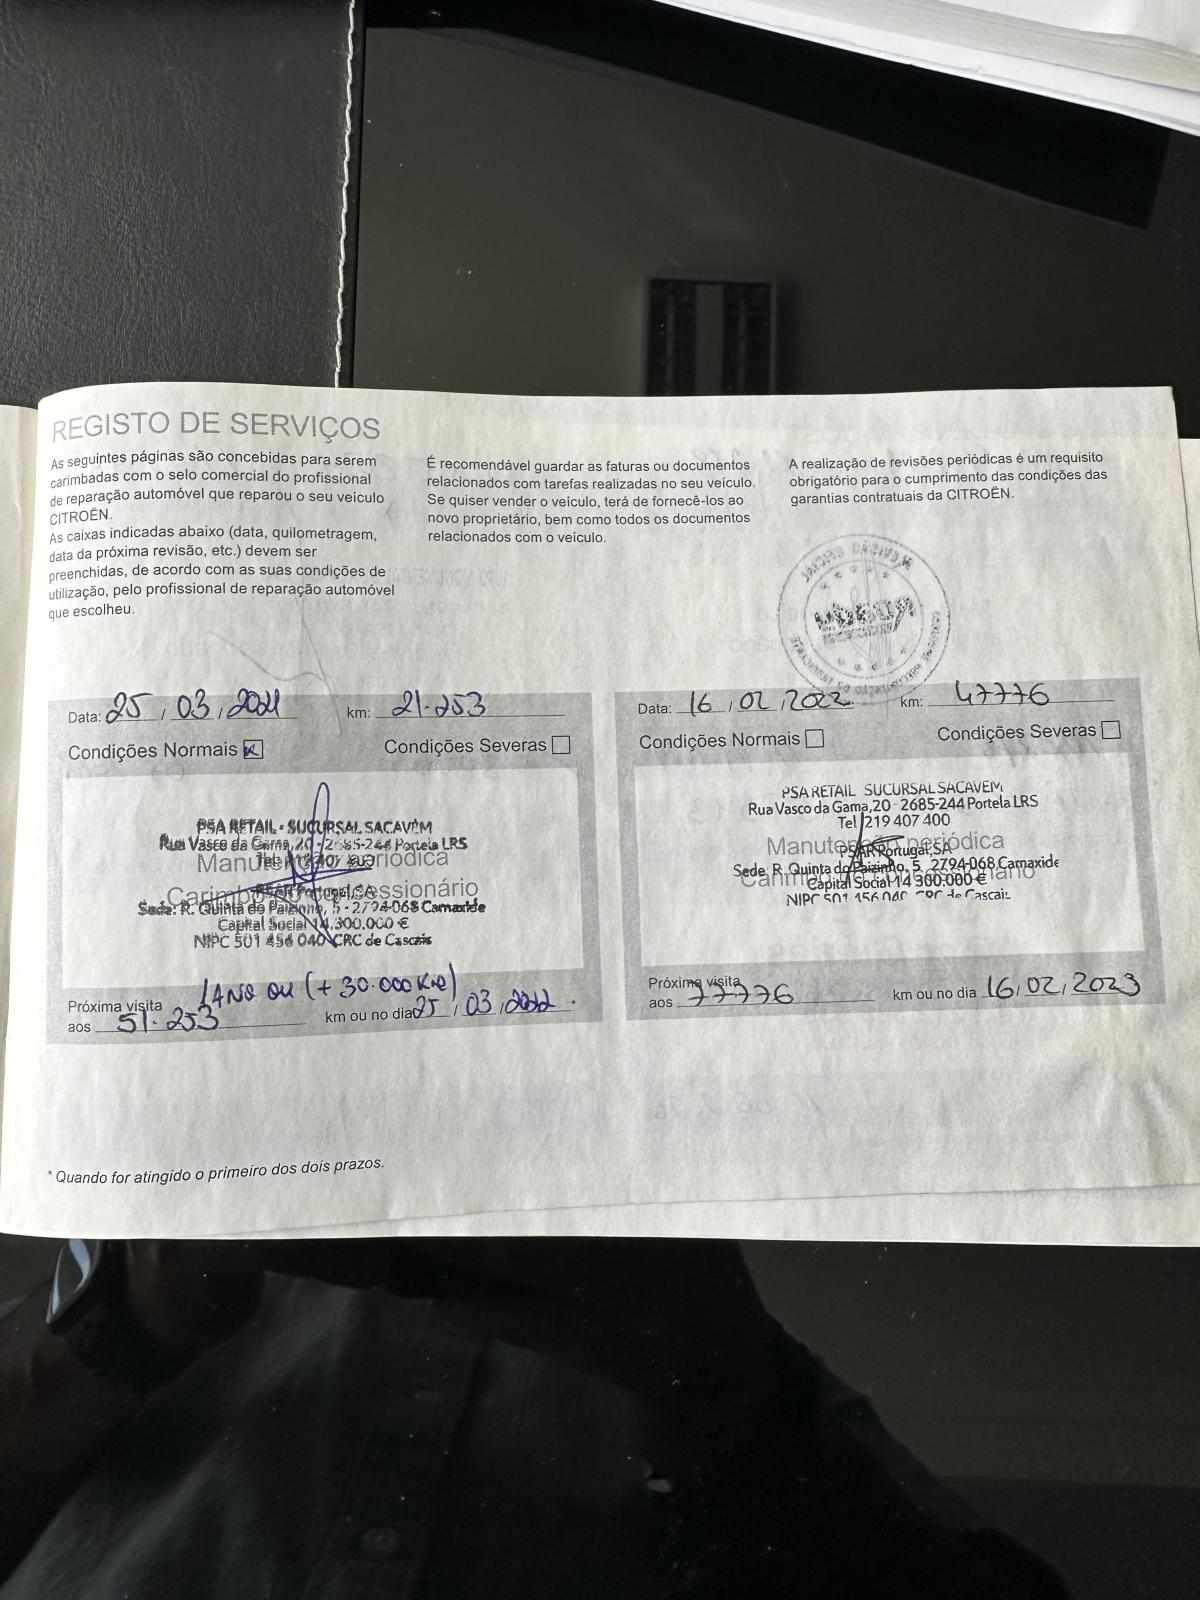 REGISTO DE SERVIÇOS
As seguintes páginas são concebidas para serem
carimbadas com o selo comercial do profissional
de reparação automóvel que reparou o seu veículo
CITROËN.
As caixas indicadas abaixo (data, quilometragem,
data da próxima revisão, etc.) devem ser
preenchidas, de acordo com as suas condições de
utilização, pelo profissional de reparação automóvel
que escolheu.
É recomendável guardar as faturas ou documentos
relacionados com tarefas realizadas no seu veículo.
Se quiser vender o veículo, terá de fornecê-los ao
novo proprietário, bem como todos os documentos
relacionados com o veículo.
A realização de revisões periódicas é um requisito
obrigatório para o cumprimento das condições das
garantias contratuais da CITROËN.
Data: 25 / 03 / 2021 km: 21.253
Condições Normais Condições Severas
PSA RETAIL - SUCURSAL SACAVÉM
Rua Vasco da Gama, 20 - 2685-244 Portela LRS
Manutenção periódica
Carimbo do concessionário
PSAR Portugal, SA
Sede: R. Quinta do Paizinho, 5 - 2794-068 Carnaxide
Capital Social 14.300.000 €
NIPC 501 456 040 CRC de Cascais
1 ANO OU (+ 30.000 Km)
Próxima visita
aos 51.253 km ou no dia 25 / 03 / 2022 .
Data: 16 / 02 / 2022 km: 47776
Condições Normais Condições Severas
PSA RETAIL SUCURSAL SACAVEM
Rua Vasco da Gama, 20 - 2685-244 Portela LRS
Tel 219 407 400
Manutenção periódica
PSAR Portugal, SA
Sede R. Quinta do Paizinho, 5, 2794-068 Carnaxide
Carimbo do concessionário
Capital Social 14 300.000 €
NIPC 501 456 040 CRC de Cascais
Próxima visita
aos 77776 km ou no dia 16 / 02 / 2023
* Quando for atingido o primeiro dos dois prazos.